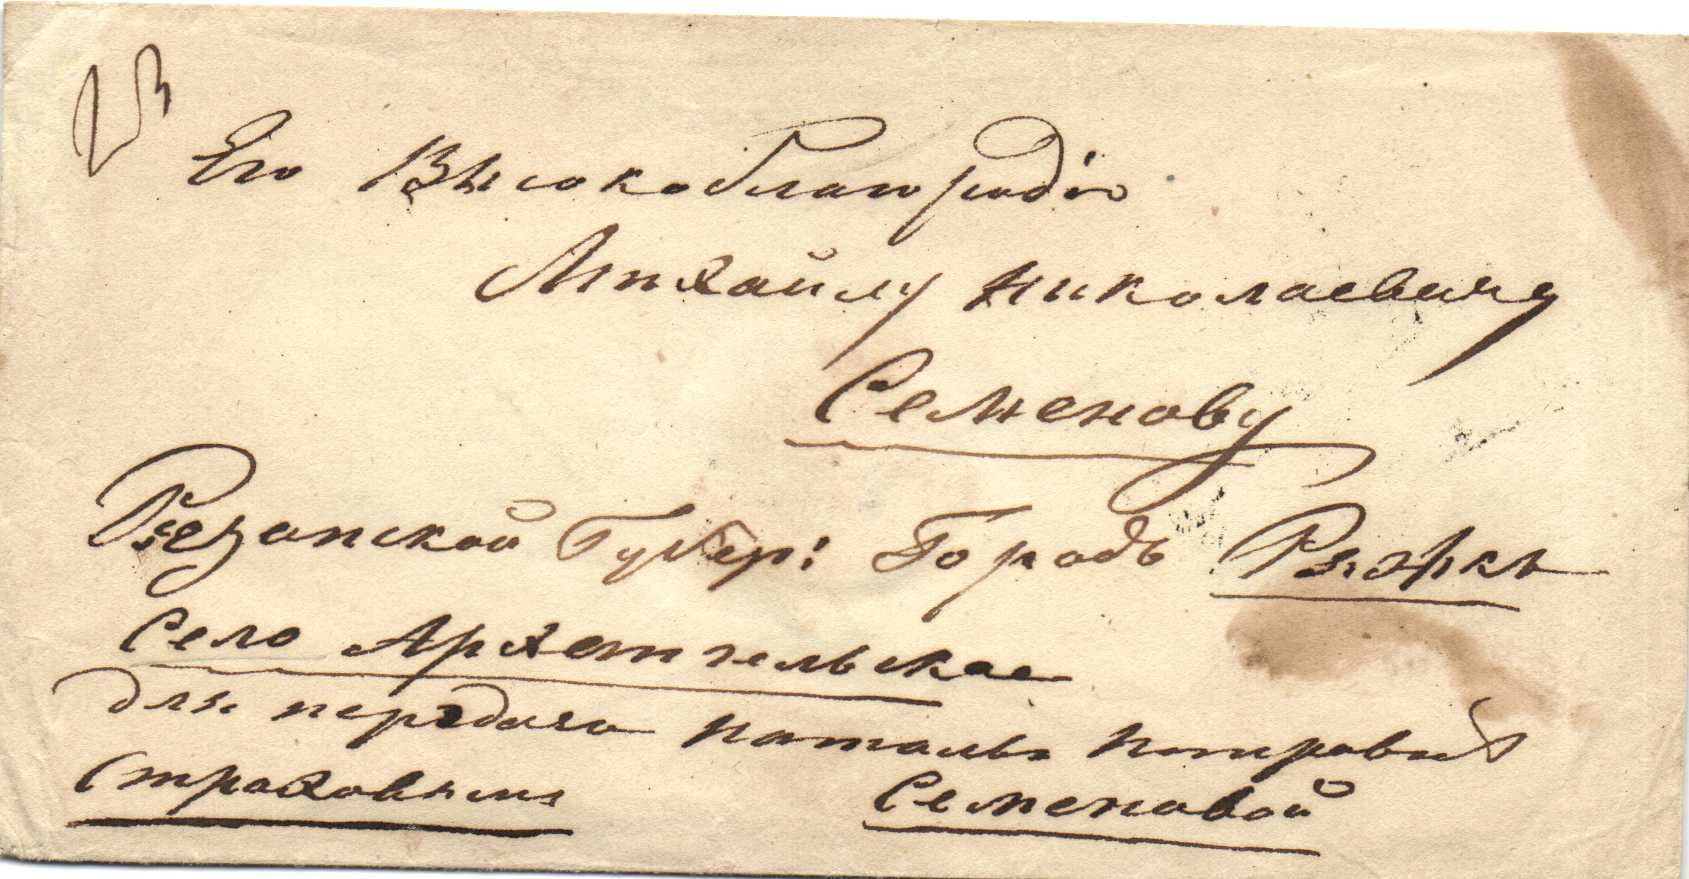 Его Высокоблагородію
Михайлу Николаевичу
Семенову
Резанской Губер: Городъ Ряжкъ
Село Архенгельское
для передачи Натальи Петровнѣ
Страховымъ Семеновой